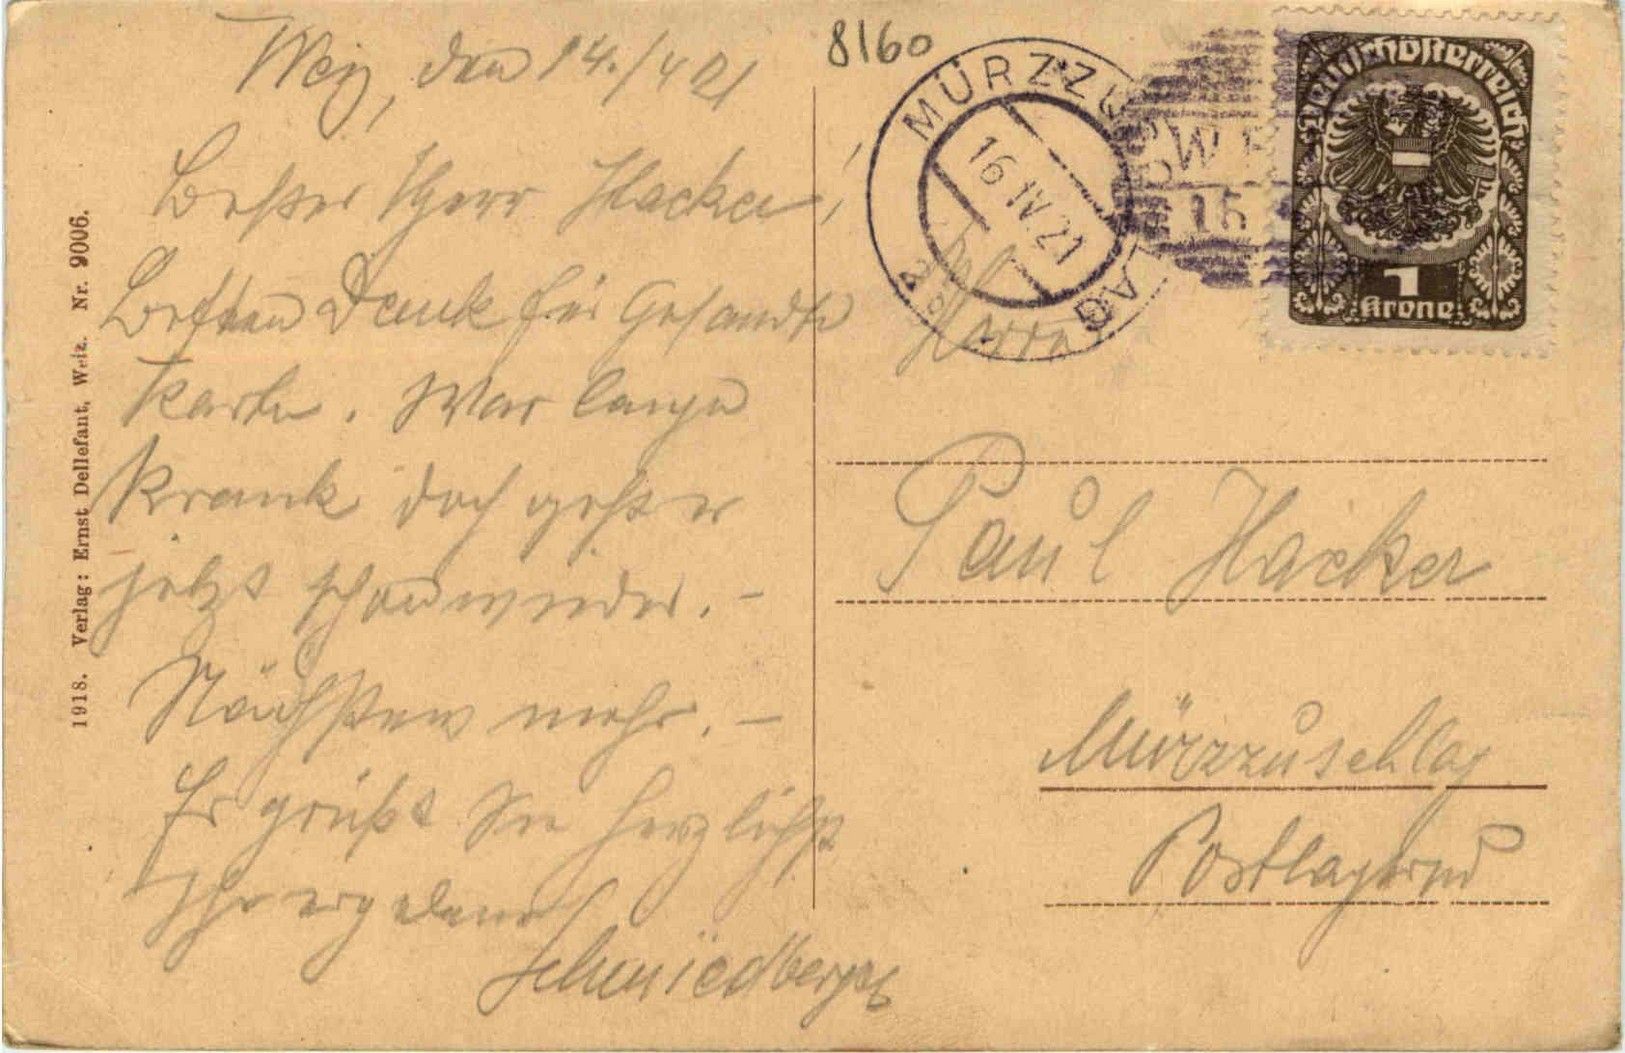 8160
Weiz, den 14./4 21
Bester Herr Hacker!
Besten Dank für Gesandte
Karte. War lange
krank doch geht es
jetzt schon wieder. –
Nächstens mehr. –
Es grüßt Sie herzlichst
Ihr ergebener
Schmiedberger
1918. Verlag: Ernst Dellefant, Weiz. Nr. 9006.
MÜRZZU AG
16 IV. 21
2a
WE
15
Deutschösterreich
1
Krone
Herrn
Paul Hacker
Mürzzuschlag
Postlagernd